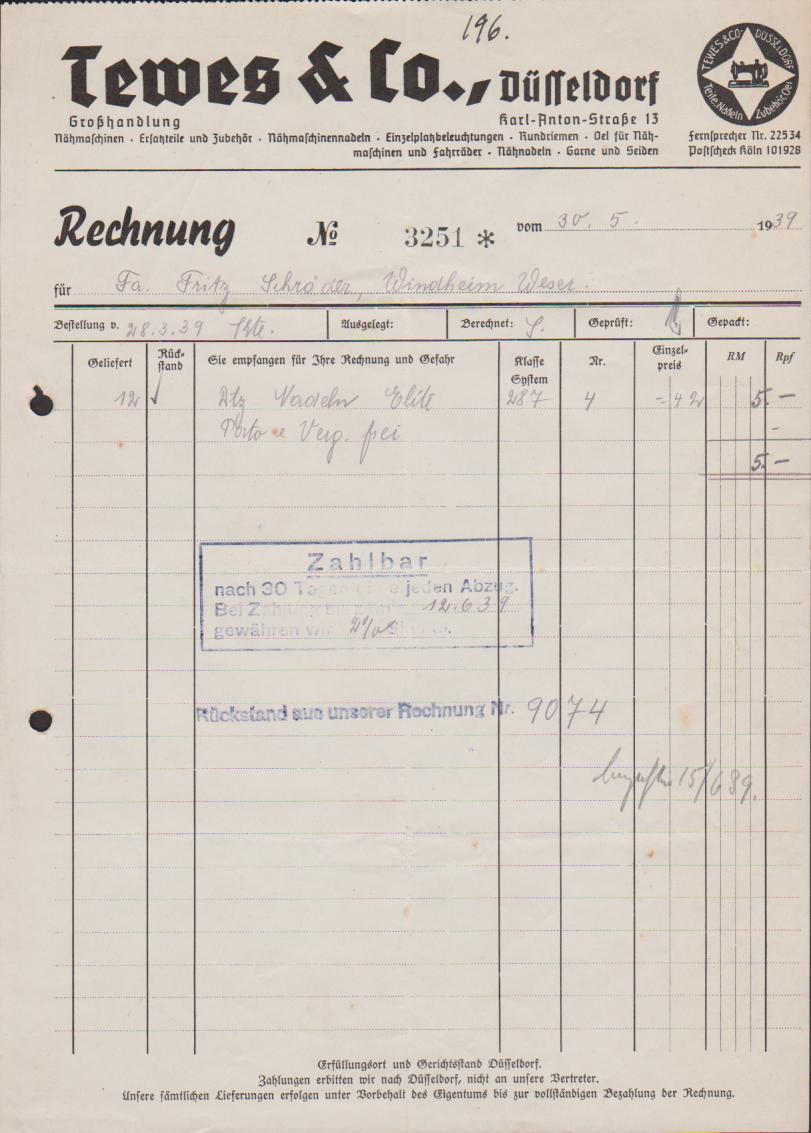 196.
Tewes & Co., Düsseldorf
TEWES & CO. DÜSSELDORF
Teile, Nadeln, Zubehör, Oel
Großhandlung Karl-Anton-Straße 13
Nähmaschinen · Ersatzteile und Zubehör · Nähmaschinennadeln · Einzelplatzbeleuchtungen · Rundriemen · Oel für Näh-
maschinen und Fahrräder · Nähnadeln · Garne und Seiden
Fernsprecher Nr. 22534
Postscheck Köln 101928
Rechnung № 3251 * vom 30. 5. 1939
für Fa. Fritz Schröder, Windheim Weser.
Bestellung v. 28.3.39 Ausgelegt: Berechnet: Geprüft: Gepackt:
Geliefert Rück-stand Sie empfangen für Ihre Rechnung und Gefahr Klasse System Nr. Einzel-preis RM Rpf
12 Dtz Nadeln Elite 287 4 -42 5.-
Porto & Verp. frei -
5.-
Zahlbar
nach 30 Tagen ohne jeden Abzug.
Bei Zahlung bis zum 12.6.39
gewähren wir 2%
Rückstand aus unserer Rechnung Nr. 9074
15/6 39.
Erfüllungsort und Gerichtsstand Düsseldorf.
Zahlungen erbitten wir nach Düsseldorf, nicht an unsere Vertreter.
Unsere sämtlichen Lieferungen erfolgen unter Vorbehalt des Eigentums bis zur vollständigen Bezahlung der Rechnung.